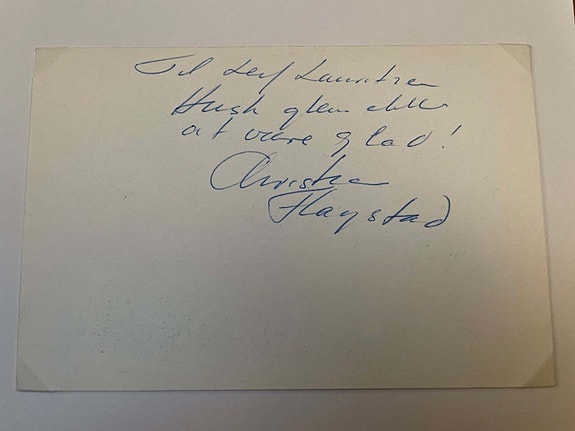 Til Leif Lauritzen
Husk glem ikke
at være glad!
Christian
Flagstad